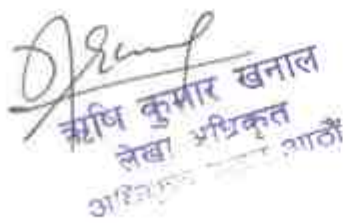 ऋषि कुमार खनाल
लेखा अधिकृत
आठौं